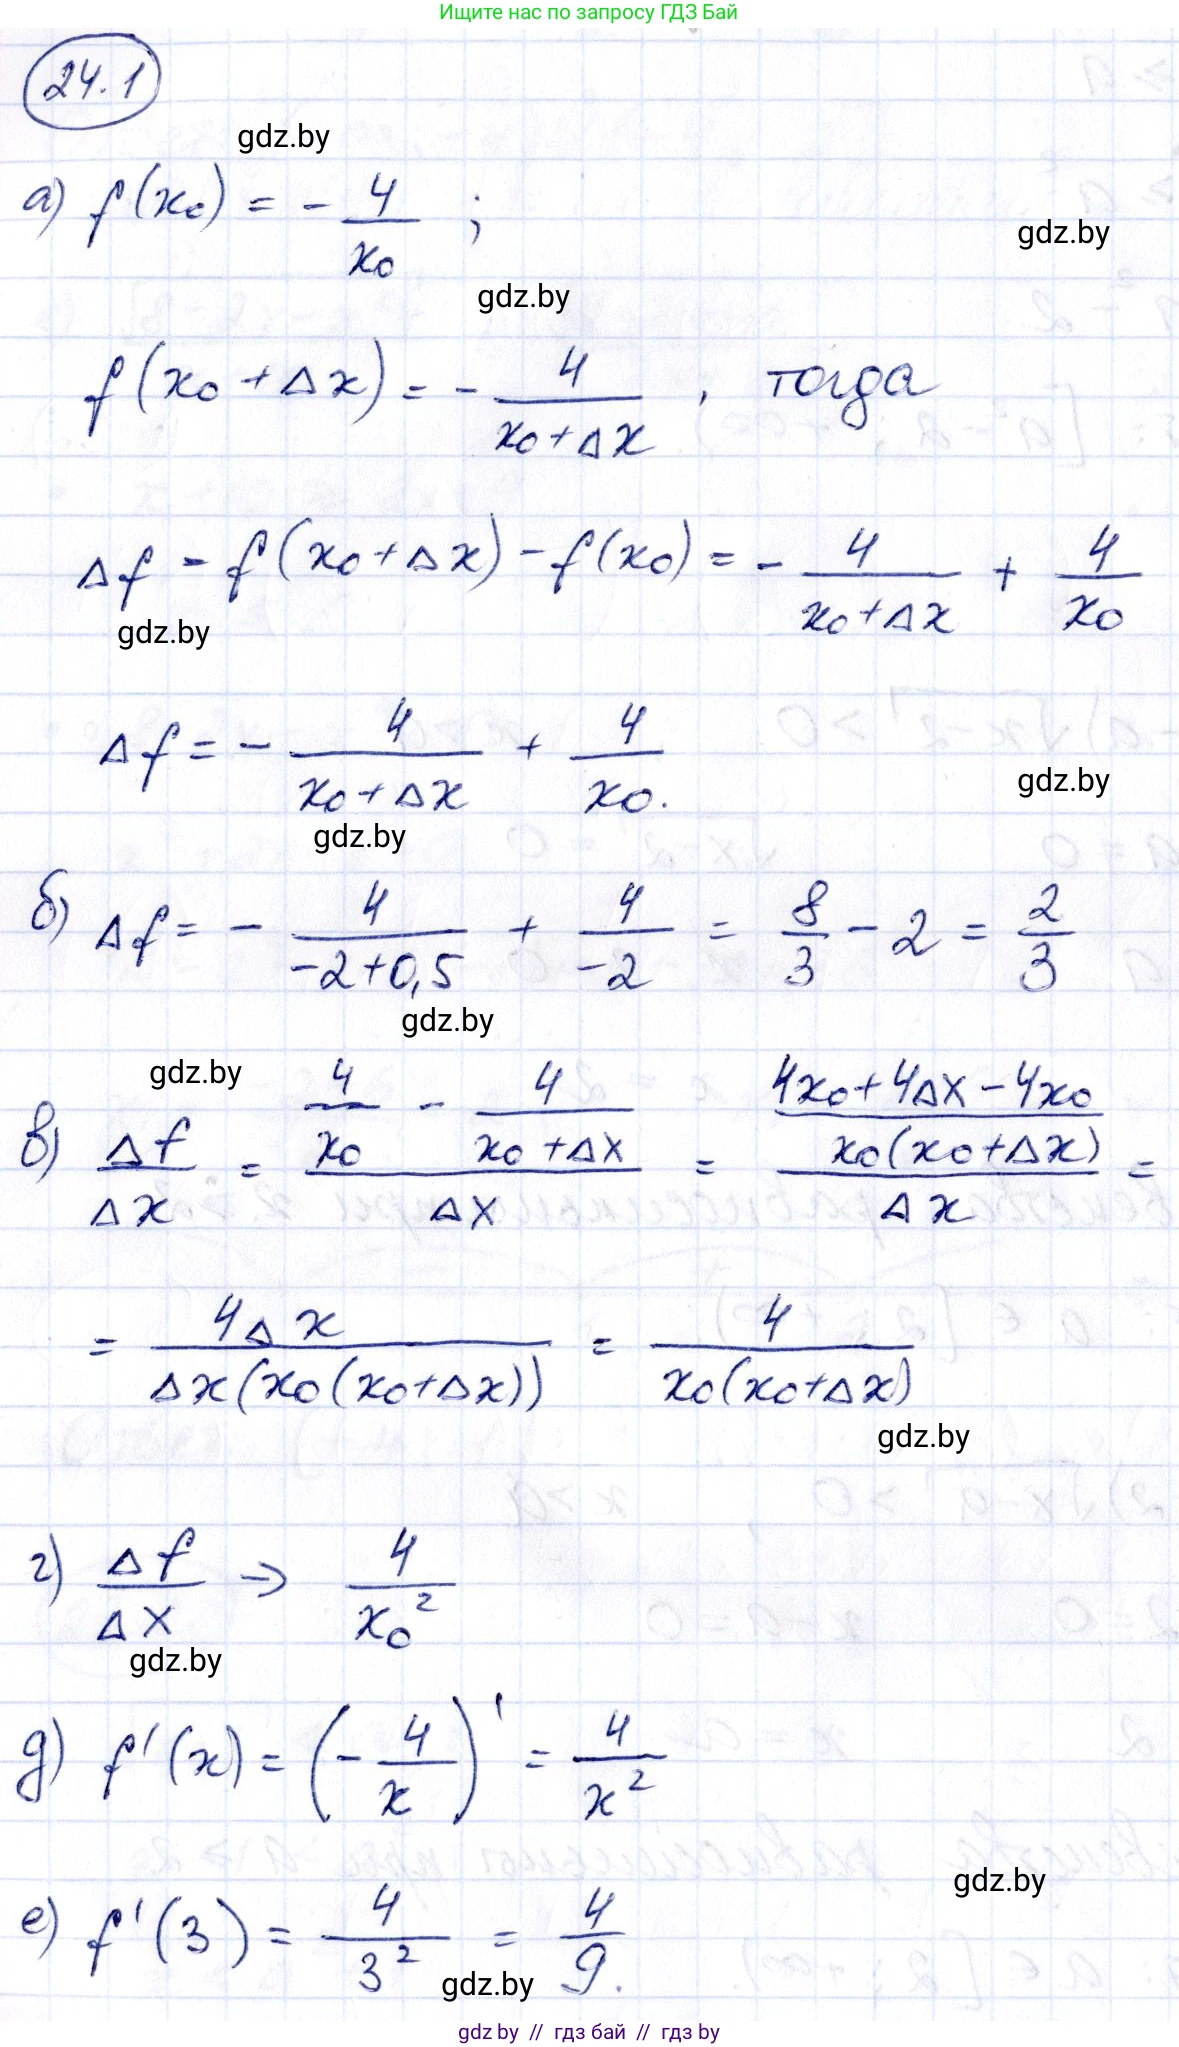 Ищите нас по запросу ГДЗ Бай
24.1
gdz.by
а) f(x₀) = - 4/x₀ ;
gdz.by
gdz.by
f(x₀ + Δx) = - 4/(x₀+Δx) , тогда
Δf - f(x₀+Δx) - f(x₀) = - 4/(x₀+Δx) + 4/x₀
gdz.by
Δf = - 4/(x₀+Δx) + 4/x₀.
gdz.by
gdz.by
б) Δf = - 4/(-2+0,5) + 4/(-2) = 8/3 - 2 = 2/3
gdz.by
gdz.by
в) Δf/Δx = (4/x₀ - 4/(x₀+Δx))/Δx = ((4x₀+4Δx-4x₀)/(x₀(x₀+Δx)))/Δx =
= 4Δx/(Δx(x₀(x₀+Δx))) = 4/(x₀(x₀+Δx))
gdz.by
г) Δf/Δx → 4/x₀²
gdz.by
д) f'(x) = (- 4/x)' = 4/x²
gdz.by
е) f'(3) = 4/3² = 4/9.
gdz.by
gdz by // гдз бай // гдз by